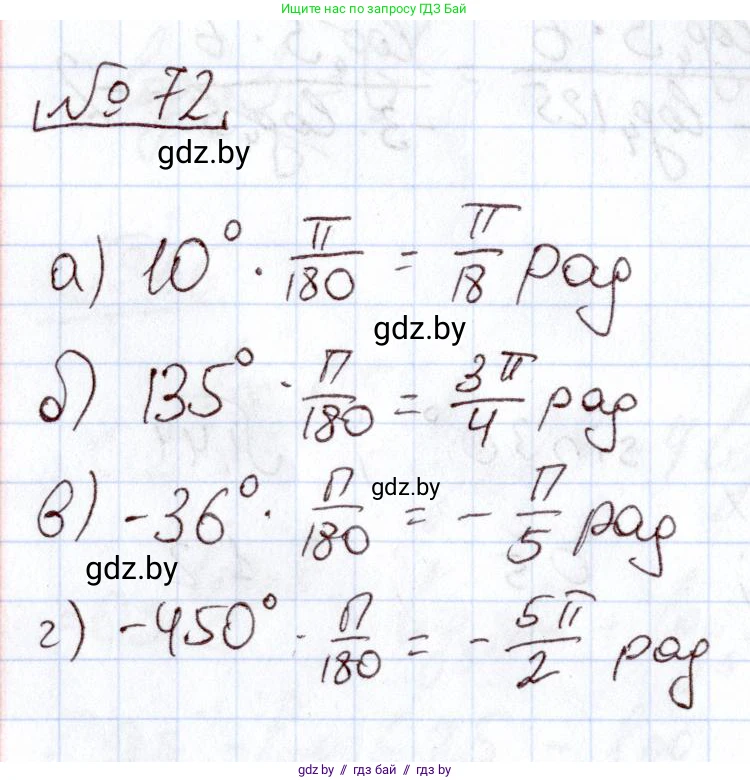 Ищите нас по запросу ГДЗ Бай
№ 72
gdz.by
а) 10° · π/180 = π/18 рад
gdz.by
б) 135° · π/180 = 3π/4 рад
в) -36° · π/180 = - π/5 рад
gdz.by
gdz.by
г) -450° · π/180 = - 5π/2 рад
gdz.by // гдз бай // гдз by